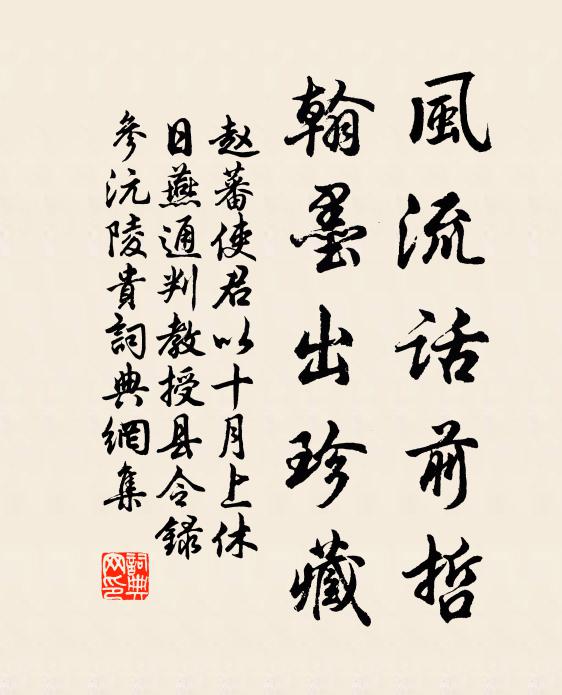 風流话前哲
翰墨出珍藏
赵蕃使君以十月上休
日燕通判教授县令錄
參沅陵貴詞典網集
詞典网印